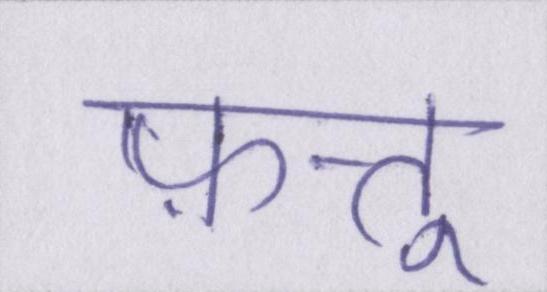 फ़त्तू